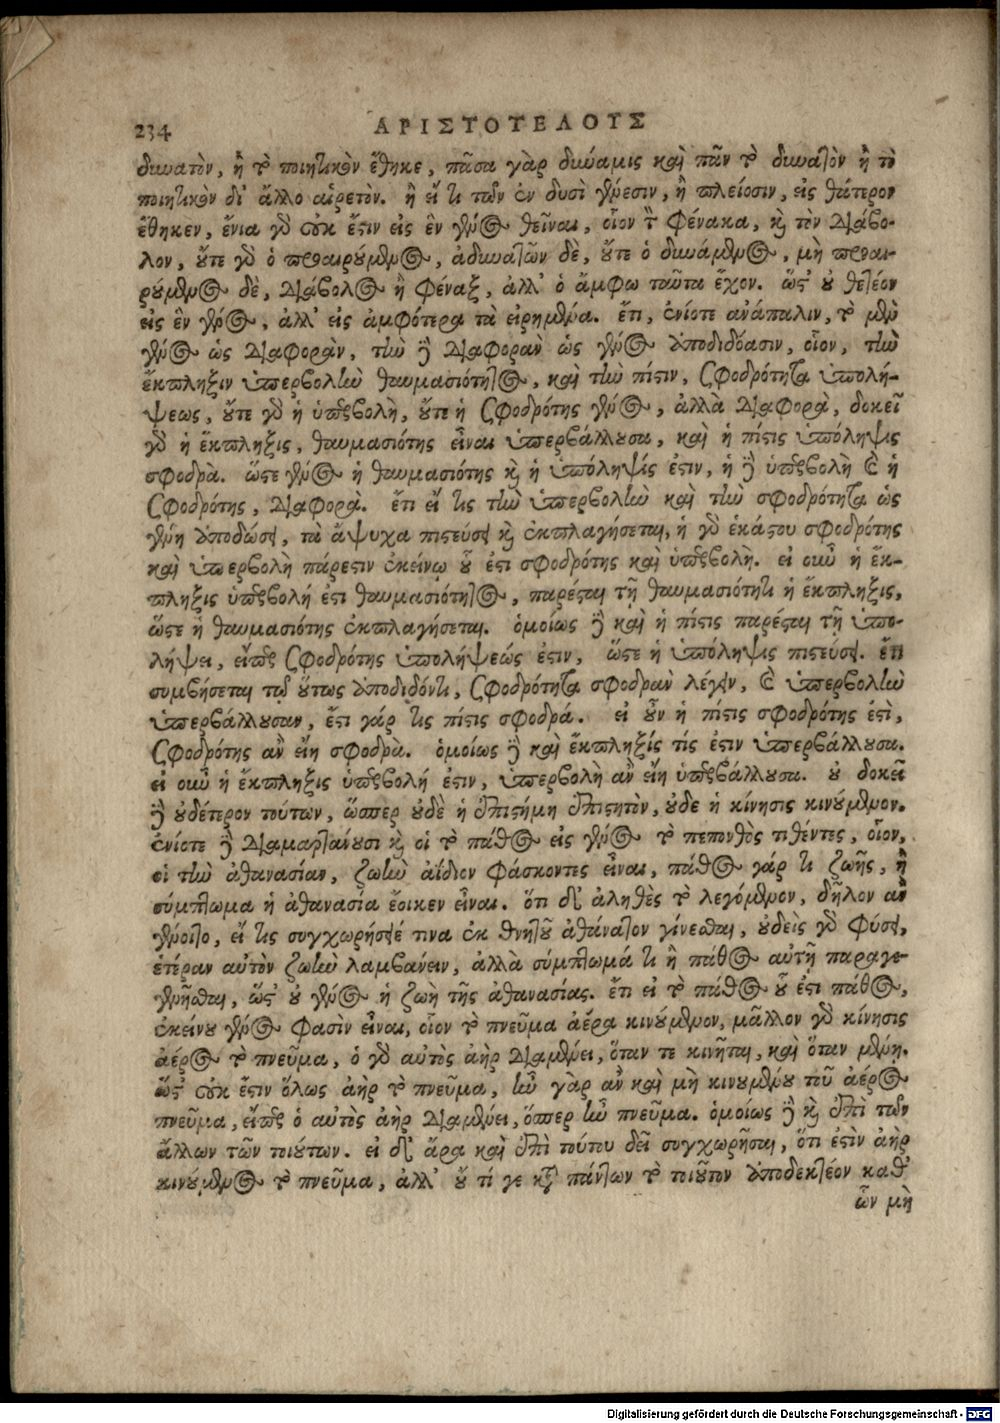 234 ΑΡΙΣΤΟΤΕΛΟΥΣ
δυνατὸν, ἢ τὸ ποιητικὸν ἔθηκε, πᾶσα γὰρ δύναμις καὶ πᾶν τὸ δυνατὸν ἢ τὸ
ποιητικὸν δι' ἄλλο αἱρετὸν. ἢ εἴ τι τῶν ἐν δυσὶ γένεσιν, ἢ πλείοσιν, εἰς θάτερον
ἔθηκεν, ἔνια γὸ οὐκ ἔστιν εἰς ἓν γένος θεῖναι, οἷον τὸν φένακα, καὶ τὸν διάβο-
λον, οὔτε γὸ ὁ προαιρούμενος, ἀδυνατῶν δὲ, οὔτε ὁ δυνάμενος, μὴ προαι-
ρούμενος δὲ, διάβολος ἢ φέναξ, ἀλλ' ὁ ἄμφω ταῦτα ἔχον. ὥστ' οὐ θετέον
εἰς ἓν γένος, ἀλλ' εἰς ἀμφότερα τὰ εἰρημένα. ἔτι, ἐνίοτε ἀνάπαλιν, τὸ μὲν
γένος ὡς διαφορὰν, τὴν δὲ διαφορὰν ὡς γένος ἀποδιδόασιν, οἷον, τὴν
ἔκπληξιν ὑπερβολὴν θαυμασιότητος, καὶ τὴν πίστιν, σφοδρότητα ὑπολή-
ψεως, οὔτε γὸ ἡ ὑπερβολὴ, οὔτε ἡ σφοδρότης γένος, ἀλλὰ διαφορὰ, δοκεῖ
γὸ ἡ ἔκπληξις, θαυμασιότης εἶναι ὑπερβάλλουσα, καὶ ἡ πίστις ὑπόληψις
σφοδρὰ. ὥστε γένος ἡ θαυμασιότης καὶ ἡ ὑπόληψίς ἐστιν, ἡ δὲ ὑπερβολὴ καὶ ἡ
σφοδρότης, διαφορὰ. ἔτι εἴ τις τὴν ὑπερβολὴν καὶ τὴν σφοδρότητα ὡς
γένη ἀποδώσει, τὰ ἄψυχα πιστεύσει καὶ ἐκπλαγήσεται, ἡ γὸ ἑκάστου σφοδρότης
καὶ ὑπερβολὴ πάρεστιν ἐκείνῳ οὗ ἐστι σφοδρότης καὶ ὑπερβολὴ. εἰ οὖν ἡ ἔκ-
πληξις ὑπερβολή ἐστι θαυμασιότητος, παρέσται τῇ θαυμασιότητι ἡ ἔκπληξις,
ὥστε ἡ θαυμασιότης ἐκπλαγήσεται. ὁμοίως δὲ καὶ ἡ πίστις παρέσται τῇ ὑπο-
λήψει, εἴπερ σφοδρότης ὑπολήψεώς ἐστιν, ὥστε ἡ ὑπόληψις πιστεύσει. ἔτι
συμβήσεται τῷ οὕτως ἀποδιδόντι, σφοδρότητα σφοδρὰν λέγειν, καὶ ὑπερβολὴν
ὑπερβάλλουσαν, ἔστι γάρ τις πίστις σφοδρά. εἰ οὖν ἡ πίστις σφοδρότης ἐστὶ,
σφοδρότης ἂν εἴη σφοδρὰ. ὁμοίως δὲ καὶ ἔκπληξίς τίς ἐστιν ὑπερβάλλουσα.
εἰ οὖν ἡ ἔκπληξις ὑπερβολή ἐστιν, ὑπερβολὴ ἂν εἴη ὑπερβάλλουσα. οὐ δοκεῖ
δὲ οὐδέτερον τούτων, ὥσπερ οὐδὲ ἡ ἐπιστήμη ἐπιστητὸν, οὐδε ἡ κίνησις κινούμενον.
ἐνίοτε δὲ διαμαρτάνουσι καὶ οἱ τὸ πάθος εἰς γένος τὸ πεπονθὸς τιθέντες, οἷον,
οἱ τὴν ἀθανασίαν, ζωὴν ἀΐδιον φάσκοντες εἶναι, πάθος γάρ τι ζωῆς, ἢ
σύμπτωμα ἡ ἀθανασία ἔοικεν εἶναι. ὅτι δ' ἀληθὲς τὸ λεγόμενον, δῆλον ἂν
γένοιτο, εἴ τις συγχωρήσειέ τινα ἐκ θνητοῦ ἀθάνατον γίνεσθαι, οὐδεὶς γὸ φύσει,
ἑτέραν αὐτὸν ζωὴν λαμβάνειν, ἀλλὰ σύμπτωμά τι ἢ πάθος αὐτῇ παραγε-
γενῆσθαι, ὥστ' οὐ γένος ἡ ζωὴ τῆς ἀθανασίας. ἔτι εἰ τὸ πάθος οὗ ἐστι πάθος,
ἐκείνου γένος φασὶν εἶναι, οἷον τὸ πνεῦμα ἀέρα κινούμενον, μᾶλλον γὸ κίνησις
ἀέρος τὸ πνεῦμα, ὁ γὸ αὐτὸς ἀὴρ διαμένει, ὅταν τε κινῆται, καὶ ὅταν μένῃ.
ὥστ' οὐκ ἔστιν ὅλως ἀὴρ τὸ πνεῦμα, ἦν γὰρ ἂν καὶ μὴ κινουμένου τοῦ ἀέρος
πνεῦμα, εἴπερ ὁ αὐτὸς ἀὴρ διαμένει, ὅσπερ ἦν πνεῦμα. ὁμοίως δὲ καὶ ἐπὶ τῶν
ἄλλων τῶν τοιούτων. εἰ δ' ἄρα καὶ ἐπὶ τούτου δεῖ συγχωρῆσαι, ὅτι ἐστὶν ἀὴρ
κινούμενος τὸ πνεῦμα, ἀλλ' οὔ τί γε κατὰ πάντων τὸ τοιοῦτον ἀποδεκτέον καθ'
ὧν μὴ
Digitalisierung gefördert durch die Deutsche Forschungsgemeinschaft - DFG